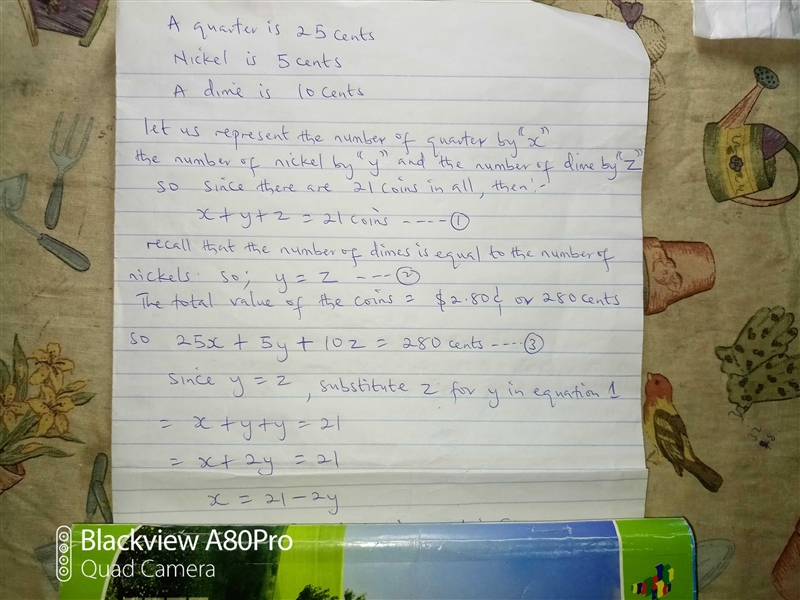 A quarter is 25 cents
Nickel is 5 cents
A dime is 10 cents
let us represent the number of quarter by "x"
the number of nickel by "y" and the number of dime by "Z"
so since there are 21 coins in all, then:-
x + y + z = 21 coins ---- ①
recall that the number of dimes is equal to the number of
nickels. so; y = z ---- ②
The total value of the coins = $2.80¢ or 280 cents
so 25x + 5y + 10z = 280 cents ---- ③
since y = z, substitute z for y in equation 1
= x + y + y = 21
= x + 2y = 21
x = 21 - 2y
Blackview A80Pro
Quad Camera